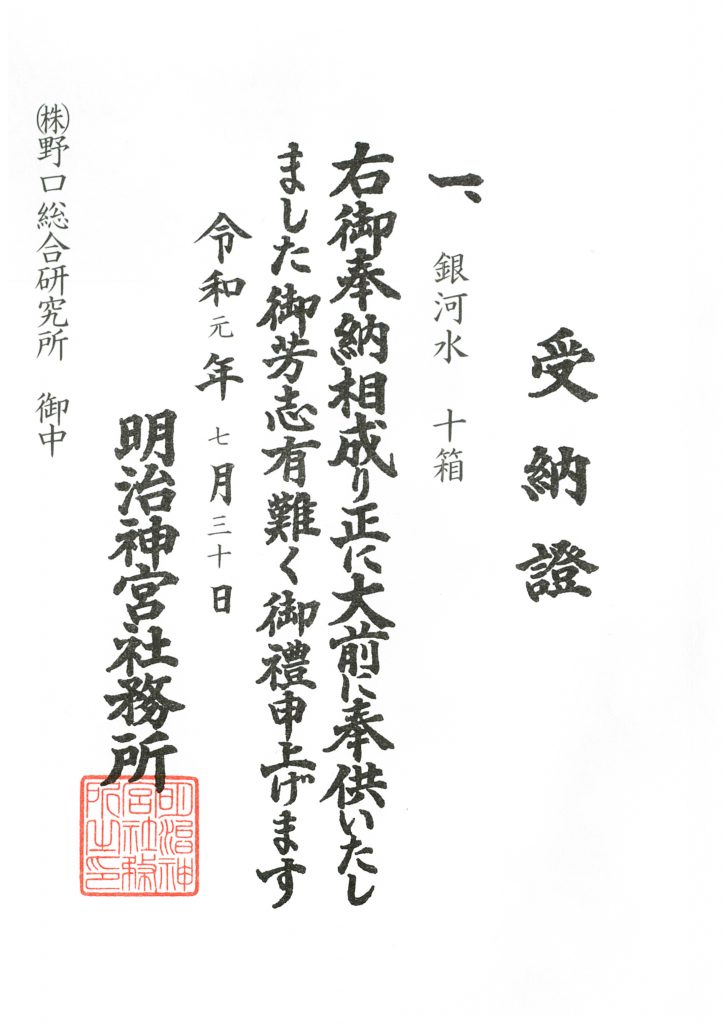 受納證
一、 銀河水 十箱
右御奉納相成り正に大前に奉供いたし
ました御芳志有難く御禮申上げます
令和元年七月三十日
明治神宮社務所
明治神宮社務所之印
㈱野口総合研究所 御中